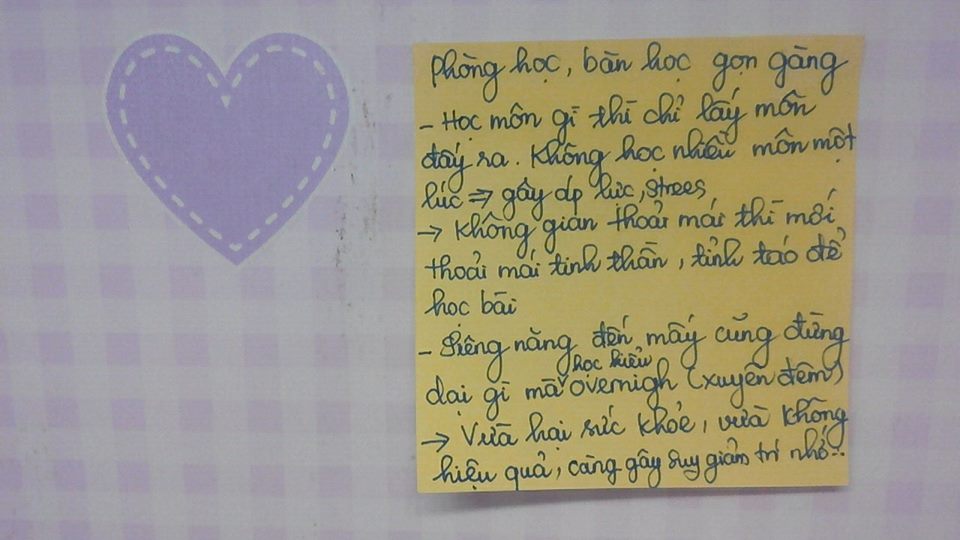 Phòng học, bàn học gọn gàng
- Học môn gì thì chỉ lấy môn
đấy ra. Không học nhiều môn một
lúc ⇒ gây áp lực, strees
→ Không gian thoải mái thì mới
thoải mái tinh thần, tỉnh táo để
học bài
- Siêng năng đến mấy cũng đừng
học kiểu
dại gì mà overnigh (xuyên đêm)
→ Vừa hại sức khỏe, vừa không
hiệu quả, càng gây suy giảm trí nhớ...